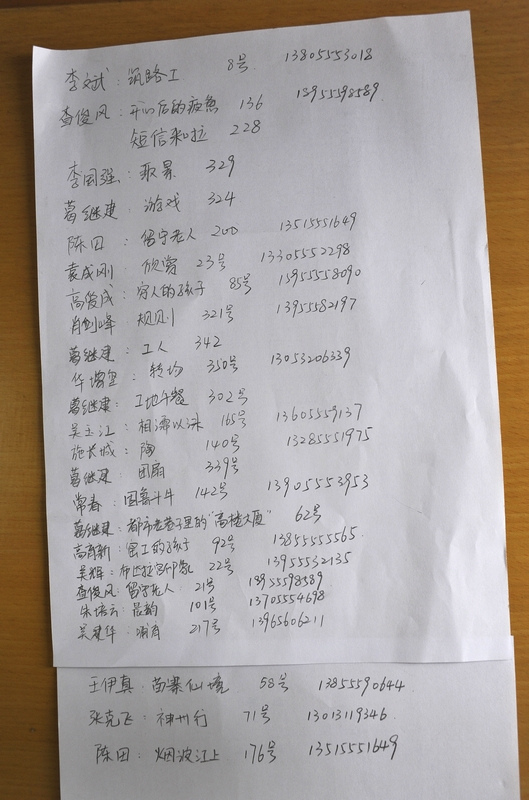 李文斌：筑路工 8号 13805553018
查俊风：开心后的疲惫 136 18955598589
短信和拉 228
李国强：取景 329
葛继建：游戏 324
陈田：留守老人 200 13515551649
袁成刚 欣赏 23号 13305552298
高俊成：穷人的孩子 85号 15955558090
肖剑峰：规则 321号 13955582197
葛继建：工人 342
华 ：转场 350号 13053206339
葛继建：工地午餐 302号
吴玉江：相濡以沫 165号 13605559137
施长城：陶 140号 13285551975
葛继建：团扇 339号
常春：圈养斗牛 142号 13905553953
葛继建：都市老巷子里的"高楼大厦" 62号
高 新：窑工的孩子 92号 13855555565
吴辉：布达拉宫印象 22号 13955532135
查俊风：留守老人：21号 18955598589
朱培云：晨韵 101号 13705554698
吴建华： 217号 13965606211
王伊真：苗寨仙境 58号 13855590644
张克飞：神州行 71号 13013119346
陈田：烟波江上 176号 13515551649